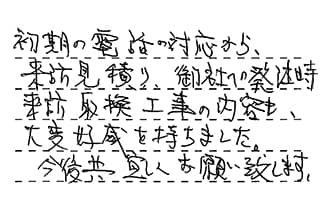 初期の電話の対応から、
来訪見積り、御社への発注時
来訪取換工事の内容も、
大変好感を持ちました。
今後共宜しくお願い致します。